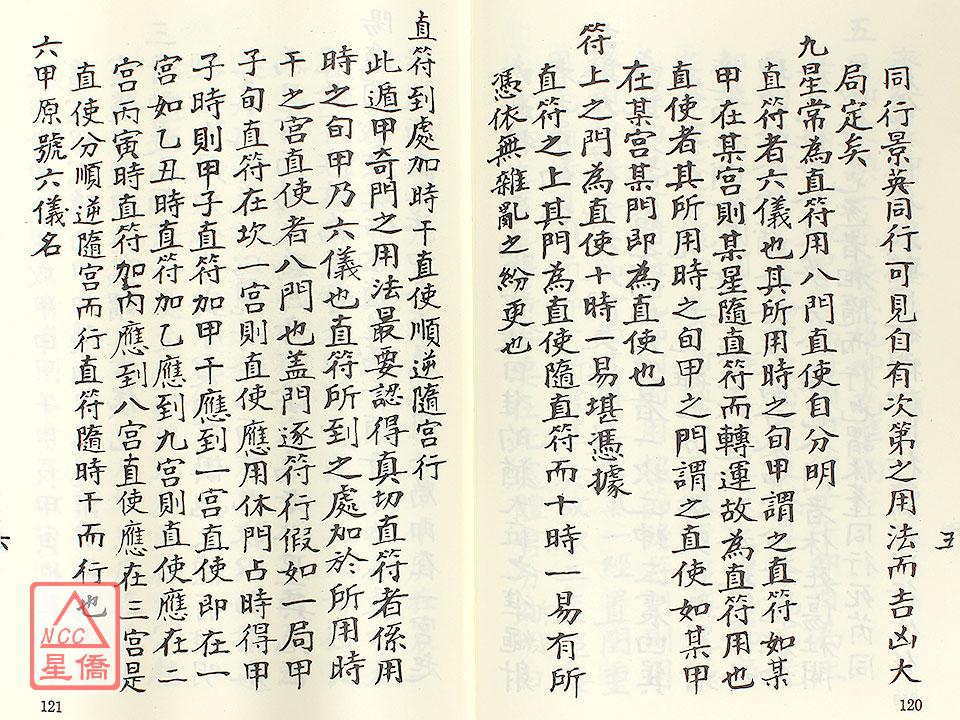 同行景英同行可見自有次第之用法而吉凶大
局定矣
九星常為直符用八門直使自分明
直符者六儀也其所用時之旬甲謂之直符如某
甲在某宮則某星隨直符而轉運故為直符用也
直使者其所用時之旬甲之門謂之直使如某甲
在某宮某門即為直使也
符上之門為直使十時一易堪憑據
直符之上其門為直使隨直符而十時一易有所
憑依無雜亂之紛更也
五
120
直符到處加時干直使順逆隨宮行
此遁甲奇門之用法最要認得真切直符者係用
時之旬甲乃六儀也直符所到之處加於所用時
干之宮直使者八門也盖門逐符行假如一局甲
子旬直符在坎一宮則直使應用休門占時得甲
子時則甲子直符加甲干應到一宮直使即在一
宮如乙丑時直符加乙應到九宮則直使應在二
宮丙寅時直符加丙應到八宮直使應在三宮是
直使分順逆隨宮而行直符隨時干而行也
六甲原號六儀名
六
121
NCC
星僑